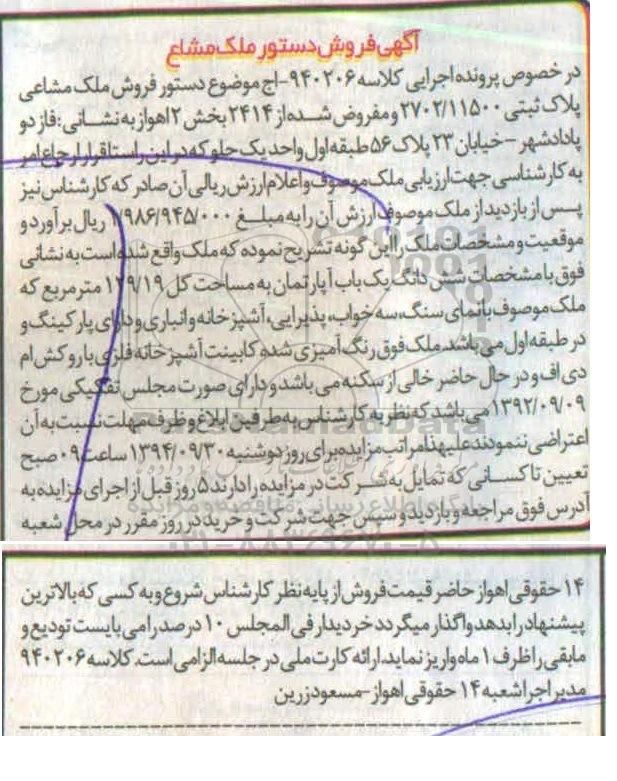 آگهی فروش دستور ملک مشاع
در خصوص پرونده اجرایی کلاسه ۹۴۰۲۰۶-اج موضوع دستور فروش ملک مشاعی
پلاک ثبتی ۲۷۰۲/۱۱۵۰۰ و مفروض شده از ۲۴۱۴ بخش ۲ اهواز به نشانی: فاز دو
پادادشهر -خیابان ۲۳ پلاک ۵۶ طبقه اول واحد یک جلو که در این راستا قرار ارجاع امر
به کارشناسی جهت ارزیابی ملک موصوف و اعلام ارزش ریالی آن صادر که کارشناس نیز
پس از بازدید از ملک موصوف ارزش آن را به مبلغ ۱/۹۸۶/۹۴۵/۰۰۰ ریال برآورد و
موقعیت و مشخصات ملک را این گونه تشریح نموده که ملک واقع شده است به نشانی
فوق با مشخصات شش دانگ یک باب آپارتمان به مساحت کل ۱۲۹/۱۹ متر مربع که
ملک موصوف با نمای سنگ، سه خواب، پذیرایی، آشپزخانه و انباری و دارای پارکینگ و
در طبقه اول می باشد. ملک فوق رنگ آمیزی شده کابینت آشپزخانه فلزی با روکش ام
دی اف و در حال حاضر خالی از سکنه می باشد و دارای صورت مجلس تفکیکی مورخ
۱۳۹۲/۰۹/۰۹ می باشد که نظریه کارشناس به طرفین ابلاغ و ظرف مهلت نسبت به آن
اعتراضی ننمودند علیهذا مراتب مزایده برای روز دوشنبه ۱۳۹۴/۰۹/۳۰ ساعت ۰۹ صبح
تعیین تا کسانی که تمایل به شرکت در مزایده را دارند ۵ روز قبل از اجرای مزایده به
آدرس فوق مراجعه و بازدید و سپس جهت شرکت و خرید در روز مقرر در محل شعبه
۰۲۱-۸۸۳۴۹۶۷۰-۵
۱۴ حقوقی اهواز حاضر قیمت فروش از پایه نظر کارشناس شروع و به کسی که بالاترین
پیشنهاد را بدهد واگذار میگردد خریدار فی المجلس ۱۰ درصد را می بایست تودیع و
مابقی را ظرف ۱ ماه واریز نماید. ارائه کارت ملی در جلسه الزامی است. کلاسه ۹۴۰۲۰۶
مدیر اجرا شعبه ۱۴ حقوقی اهواز-مسعود زرین